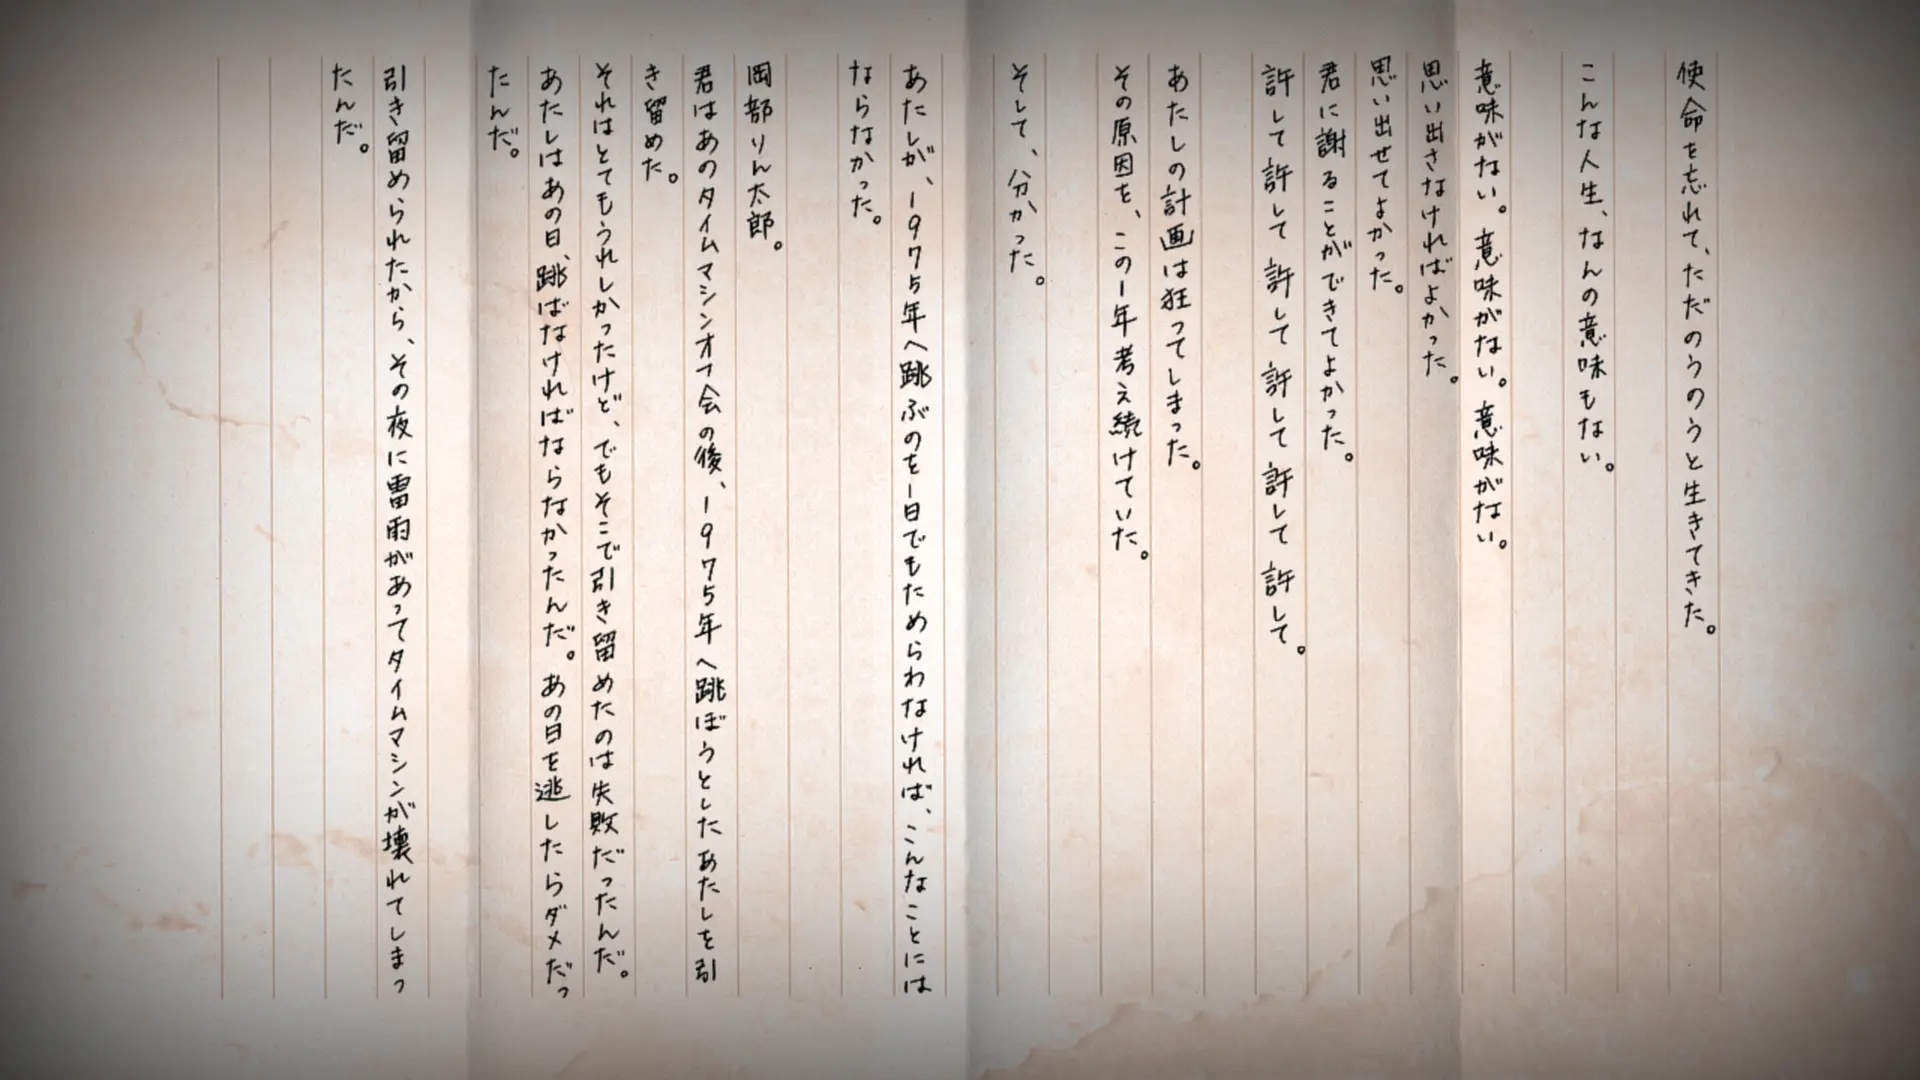 使命を忘れて、ただのうのうと生きてきた。
こんな人生、なんの意味もない。
意味がない。意味がない。意味がない。
思い出さなければよかった。
思い出せてよかった。
君に謝ることができてよかった。
許して許して許して許して許して許して。
あたしの計画は狂ってしまった。
その原因を、この1年考え続けていた。
そして、分かった。
あたしが、1975年へ跳ぶのを1日でもためらわなければ、こんなことには
ならなかった。
岡部りん太郎。
君はあのタイムマシンオフ会の後、1975年へ跳ぼうとしたあたしを引
き留めた。
それはとてもうれしかったけど、でもそこで引き留めたのは失敗だったんだ。
あたしはあの日、跳ばなければならなかったんだ。あの日を逃したらダメだっ
たんだ。
引き留められたから、その夜に雷雨があってタイムマシンが壊れてしまっ
たんだ。